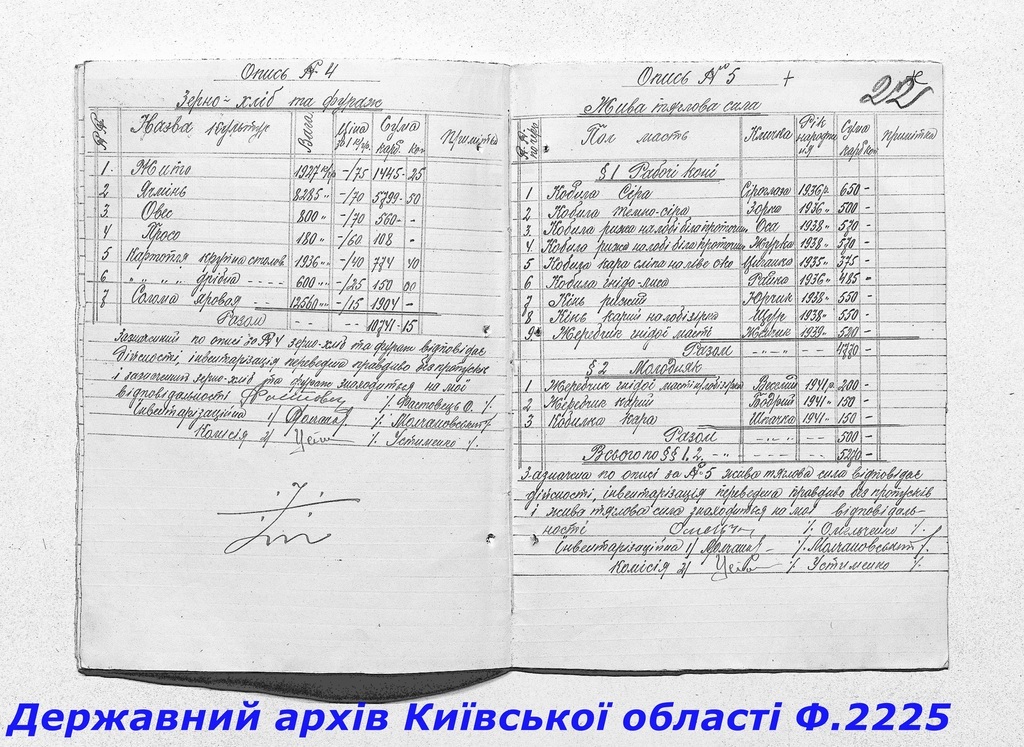 Опись № 4
Зерно-хліб та фураж
№№ Назва культур Вага Ціна за 1 кгр. Сума карб. коп Примітка
1. Жито 1927 кгр -/75 1445-25
2 Ячмінь 8285 -"- -/70 5799-50
3. Овес 800 " -/70 560- -
4 Просо 180 " -/60 108 -
5 Картопля крупна столов. 1936 " " -/40 774 40
6 " " " дрібна - - - 600 " " -/25 150 00
7 Солома яровая - - 12560 " " -/15 1904 -
Разом - - - - 10741-15
Зазначений по описі за № 4 зерно-хліб та фураж відповідає
дійсності, інвентарізація переведена правдиво без пропусків
і зазначений зерно-хліб та фураж знаходиться на моїй
відповідальності /. Фастовець О. /.
Інвентарізаційна 1/ /. Молчановський /.
Комісія 2/ /. Устименко /.
Опись № 5 +
221
Жива тяглова сила
№№ по чер. Пол масть Кличка Рік народження Сума карб коп примітка
§ 1 Рабочі коні
1 Кобила Сіра Сіроглаза 1936 р. 650 -
2 Кобила темно-сіра Зорка 1936 " 500 -
3. Кобила рижа на лобі біла проточин. Оса 1938 " 570 -
4 Кобила рижа на лобі біла проточин. Журка 1938 " 570 -
5 Кобила кара сліпа на ліве око Циганка 1935 " 375 -
6 Кобила гнідо-лиса Райка 1936 " 485 -
7 Кінь рижий Юрчик 1938 " 550 -
8 Кінь карий на лобі зірка Щур 1938 " 550 -
9 Жеребчик гнідої масті 1939 - 520 -
Разом -"-"- - 4770 -
§ 2 Молодняк
1 Жеребчик гнідої масті на лобі зірка Веселий 1941 р. 200 -
2 Жеребчик карий Бодрий 1941 " 150 -
3 Кобилка кара Шпачка 1941 - 150 -
Разом -"-"- - 500 -
Всього по §§ 1, 2. - " - - 5270 -
Зазначена по описі за № 5 жива тяглова сила відповідає
дійсності, інвентарізація переведена правдиво без пропусків
і жива тяглова сила знаходиться на моїй відповідаль-
ності /. Омельченко /.
Інвентарізаційна 1/ /. Молчановський /.
Комісія 2/ /. Устименко /.
Державний архів Київської області Ф.2225